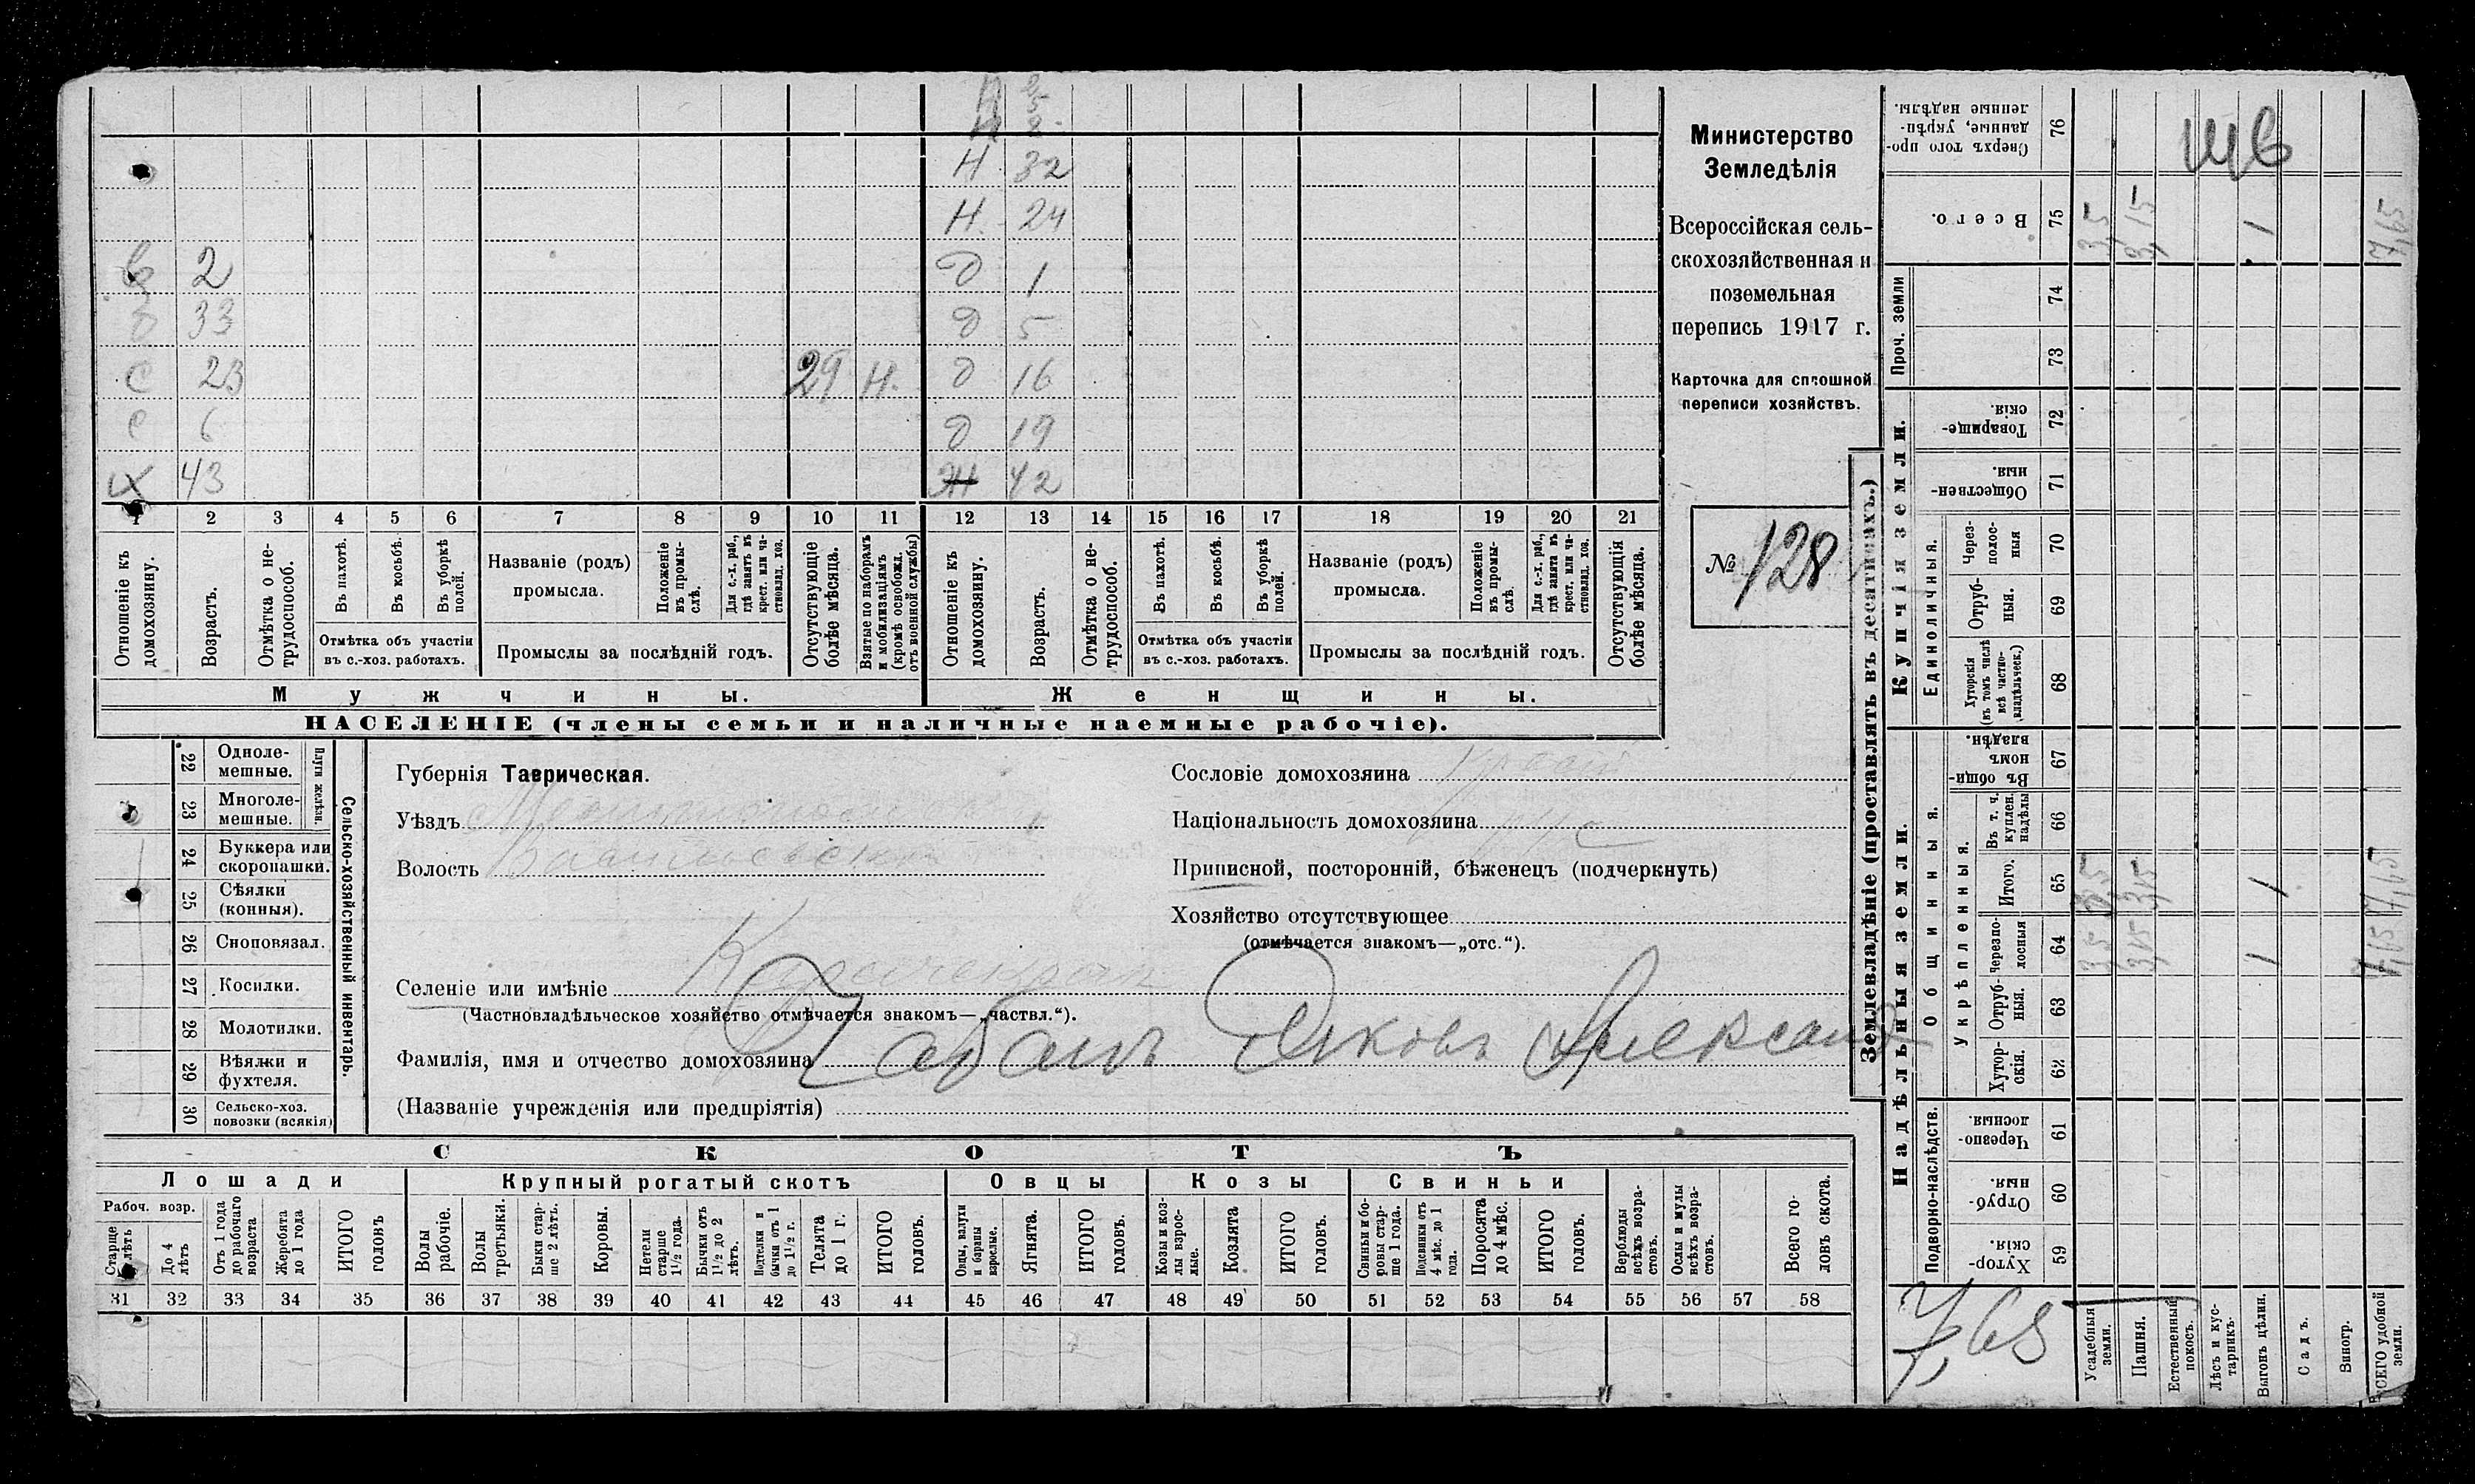 в
5
н 2
Н 32
Н. 24
в 2 д 1
33 д 5
с 23 29 Н. д 16
с 6 д 19
х 43 Ж 42
1 2 3 4 5 6 7 8 9 10 11 12 13 14 15 16 17 18 19 20 21
Отношеніе къ домохозяину.
Возрастъ.
Отмѣтка о нетрудоспособ.
Въ пахотѣ.
Въ косьбѣ.
Въ уборкѣ полей.
Отмѣтка объ участіи
въ с.-хоз. работахъ.
Названіе (родъ)
промысла.
Положеніе въ промыслѣ.
Для с.-х. раб., гдѣ занятъ въ крест. или частновлад. хоз.
Промыслы за послѣдній годъ.
Отсутствующіе болѣе мѣсяца.
Взятые по наборамъ и мобилизаціямъ (кромѣ освобожд. отъ военной службы)
Отношеніе къ домохозяину.
Возрастъ.
Отмѣтка о нетрудоспособ.
Въ пахотѣ.
Въ косьбѣ.
Въ уборкѣ полей.
Отмѣтка объ участіи
въ с.-хоз. работахъ.
Названіе (родъ)
промысла.
Положеніе въ промыслѣ.
Для с.-х. раб., гдѣ занята въ крест. или частновлад. хоз.
Промыслы за послѣдній годъ.
Отсутствующія болѣе мѣсяца.
Мужчины.
Женщины.
НАСЕЛЕНІЕ (члены семьи и наличные наемные рабочіе).
Министерство
Земледѣлія
Всероссійская сель-
скохозяйственная и
поземельная
перепись 1917 г.
Карточка для сплошной
переписи хозяйствъ.
№ 128
22 Одноле-
мешные.
23 Многоле-
мешные.
Плуги желѣзн.
24 Буккера или
скоропашки.
25 Сѣялки
(конныя).
26 Сноповязал.
27 Косилки.
28 Молотилки.
29 Вѣялки и
фухтеля.
30 Сельско-хоз.
повозки (всякія)
Сельско-хозяйственный инвентарь.
Губернія Таврическая.
Уѣздъ
Волость
Селеніе или имѣніе
(Частновладѣльческое хозяйство отмѣчается знакомъ—„частвл.“).
Фамилія, имя и отчество домохозяина Чабанъ Яковъ Александ
(Названіе учрежденія или предпріятія)
Сословіе домохозяина
Національность домохозяина рус
Приписной, посторонній, бѣженецъ (подчеркнуть)
Хозяйство отсутствующее
(отмѣчается знакомъ—„отс.“).
СКОТЪ
Лошади Крупный рогатый скотъ Овцы Козы Свиньи
Рабоч. возр.
Старше лѣтъ
До 4 лѣтъ
Отъ 1 года до рабочаго возраста
Жеребята до 1 года
ИТОГО головъ
Волы рабочіе.
Волы третьяки.
Быки старше 2 лѣтъ.
Коровы.
Нетели старше 1½ года.
Бычки отъ 1½ до 2 лѣтъ.
Подтелки и бычки отъ 1 до 1½ г.
Телята до 1 г.
ИТОГО головъ.
Овцы, валухи и бараны взрослые.
Ягнята.
ИТОГО головъ.
Козы и козлы взрослые.
Козлята
ИТОГО головъ.
Свиньи и боровы старше 1 года.
Подсвинки отъ 4 мѣс. до 1 года.
Поросята до 4 мѣс.
ИТОГО головъ.
Верблюды всѣхъ возрастовъ.
Ослы и мулы всѣхъ возрастовъ.
Всего головъ скота.
31 32 33 34 35 36 37 38 39 40 41 42 43 44 45 46 47 48 49 50 51 52 53 54 55 56 57 58
Землевладѣніе (проставлять въ десятинахъ.)
Надѣльныя земли.
Купчія земли.
Проч. земли
Подворно-наслѣдств.
Общинныя.
Укрѣпленныя.
Единоличныя.
Сверхъ того проданные, укрѣпленные надѣлы. 76
Всего. 75 3,5 3,15 1 7,65
74
73
Товарищескія. 72
Общественныя. 71
Черезполосныя 70
Отрубныя. 69
Хуторскія (въ томъ числѣ всѣ частновладѣльческ.) 68
Въ общинномъ владѣн. 67
Въ т. ч. куплен. надѣлы 66
Итого. 65 3,5 3,15 1 7,65
Черезполосныя 64 3,5 3,15 1 7,65
Отрубныя. 63
Хуторскія. 62
Черезполосныя 61
Отрубныя. 60
Хуторскія. 59
7,65
Усадебныя земли.
Пашня.
Естественный покосъ.
Лѣсъ и кустарникъ.
Выгонъ цѣлин.
Садъ.
Виногр.
ВСЕГО удобной земли.